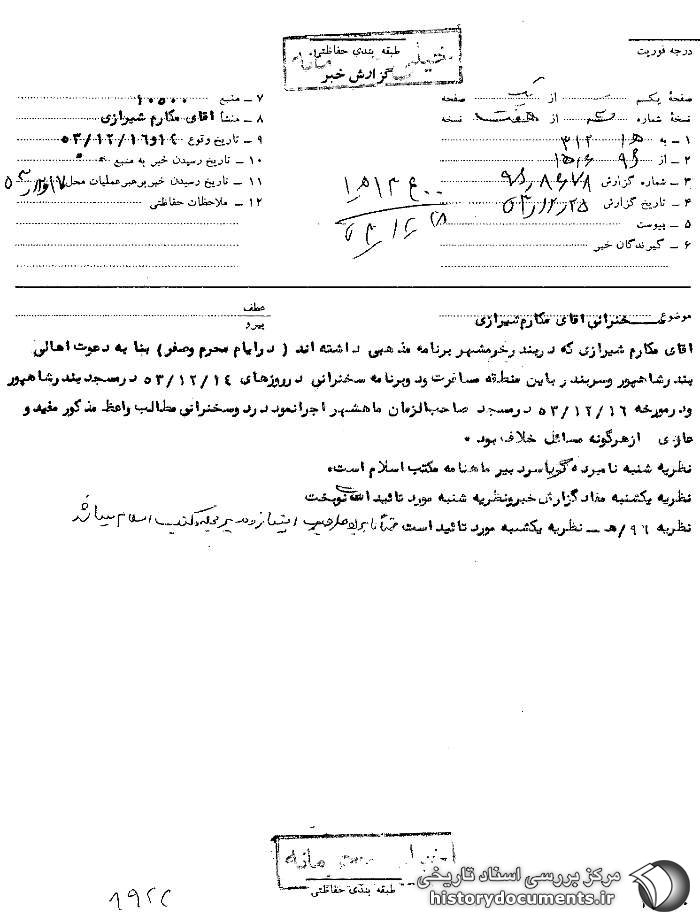 درجه فوریت
طبقه بندی حفاظتی
خیلی محرمانه
گزارش خبر
صفحهٔ یکم از یک صفحه
نسخهٔ شماره از هفت نسخه
۱ – به ۳۱۲ ه‍
۲ – از ۹ ه‍ ۱
۳ – شماره گزارش
۴ – تاریخ گزارش ۵۳/۱۲/۲۵
۵ – پیوست
۶ – گیرندگان خبر
۷ – منبع ۱۰۵۰۰
۸ – منشأ آقای مکارم شیرازی
۹ – تاریخ وقوع ۱۴و۵۳/۱۲/۱۶
۱۰ – تاریخ رسیدن خبر به منبع
۱۱ – تاریخ رسیدن خبر برهبر عملیات محل
۱۲ – ملاحظات حفاظتی
موضوع سخنرانی آقای مکارم شیرازی
عطف
پیرو
آقای مکارم شیرازی که در بندر خرمشهر برنامه مذهبی داشته اند ( در ایام محرم وصفر) بنا به دعوت اهالی
بندر شاهپور وسربندر باین منطقه مسافرت ودوبرنامه سخنرانی در روزهای ۵۳/۱۲/۱۴ درمسجد بندر شاهپور
ودرمورخه ۵۳/۱۲/۱۶ درمسجد صاحب الزمان ماهشهر اجرا نمود وسخنرانی مطالب واعظ مذکور مفید و
عاری از هرگونه مسائل خلاف بود .
نظریه شنبه نامبرده گویا سردبیر ماهنامه مکتب اسلام است .
نظریه یکشنبه مفاد گزارش خبر ونظریه شنبه مورد تائید است نوبخت
نظریه ۹۶/هـ – نظریه یکشنبه مورد تائید است ضمناً نامبرده صاحب امتیاز و مدیر مجله مکتب اسلام میباشد
خیلی محرمانه
طبقه بندی حفاظتی
مرکز بررسی اسناد تاریخی
historydocuments.ir